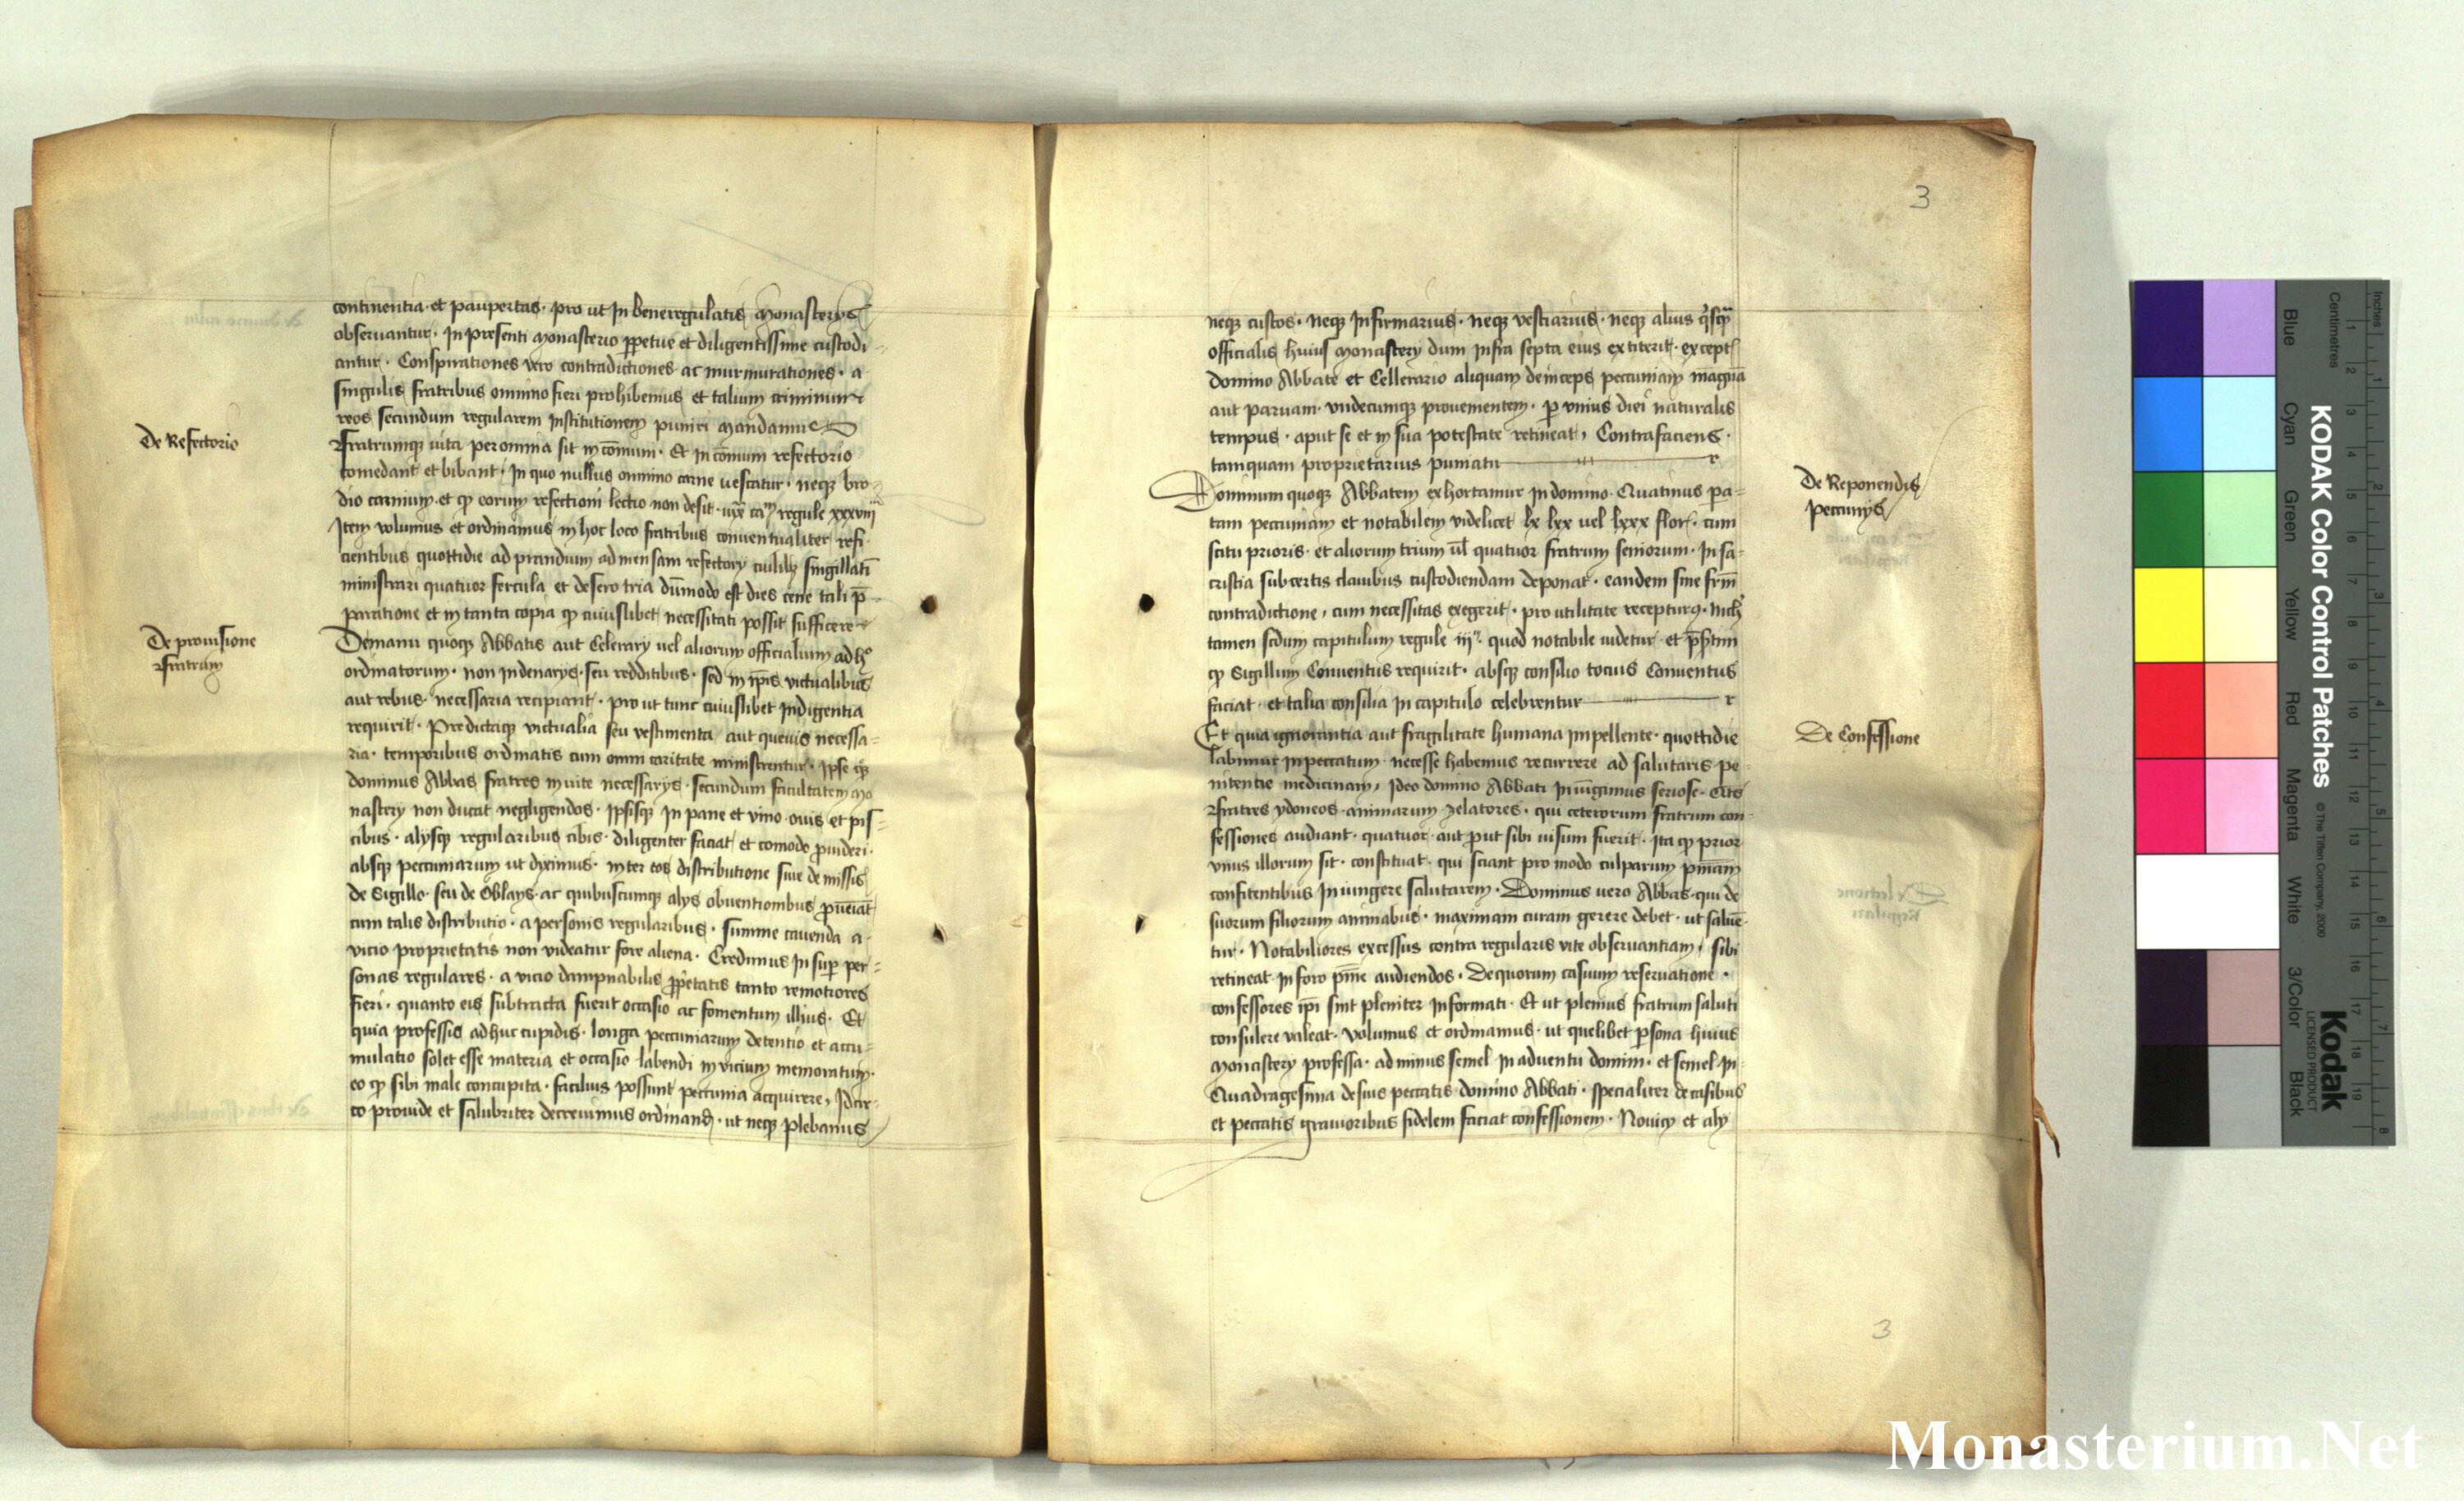 continentia · et paupertas · pro ut in bene regulatis monasterys
observantur · in presenti monasterio ppetue et diligentissime custodi-
antur · Conspirationes vero contradictiones ac murmurationes · a
singulis fratribus omnino fieri prohibemus et talium criminum
reos secundum regularem institutionem puniri mandamus
De Refectorio
Fratrumq vita per omnia sit in comuni · Et in comuni refectorio
comedant et bibant · in quo nullus omnino carne vescatur · neq bro-
dio carnium · et q eorum refectioni lectio non desit · regule xxxviii
Item volumus et ordinamus in hoc loco fratribus conventualiter refi-
cientibus quottidie ad prandium ad mensam refectory cuilibz singillati
ministrari quatuor fercula et de sero tria dumodo est dies cene tali p-
paratione et in tanta copia q cuiuslibet necessitati possit sufficere
De provisione
fratrum
De manu quoq Abbatis aut Celerary vel aliorum officialium ad hoc
ordinatorum · non in denarys · seu redditibus · sed in ipis victualibus
aut rebus · necessaria recipiant · pro ut tunc cuiuslibet indigentia
requirit · Predictaq victualia seu vestimenta aut quevis necessa-
ria · temporibus ordinatis cum omni caritate ministrentur · Ipse q
dominus Abbas fratres in vite necessarys · secundum facultatem mo
nastery non ducat negligendos · Ipsisq in pane et vino ovis et pis-
cibus · alysq regularibus cibis · diligenter faciat et comode pvideri ·
absq peccuniarum ut diximus · inter eos distributione sive de missis
de Sigillo · seu de Oblays · ac quibuscumq alys obventionibus pveniat
cum talis distributio · a personis regularibus · summe cavenda a
vicio proprietatis non videatur fore aliena · Credimus in sup per-
sonas regulares · a vicio dampnabilis ppetatis tanto remotiores
fieri · quanto eis subtracta fuerit occasio ac fomentum illius · Et
quia professis ad huc cupidis · longa peccuniarum detentio et accu-
mulatio solet esse materia et occasio labendi in vicium memoratum ·
eo q sibi male concupita · facilius possunt peccunia acquirere, Idcir-
co provide et salubriter decrevimus ordinand · ut neq plebanus
3
neq custos · neq Infirmarius · neq vestiarius · neq alius qsq
officialis huius monastery dum infra septa eius extiterit · except
domino Abbate et Cellerario aliquam deinceps peccuniam magna
aut parvam · undecumq provenientem · p unius diei naturalis
tempus · aput se et in sua potestate retineat, Contrafaciens ·
tamquam proprietarius puniatur
De Reponendis
peccunys
Dominum quoq Abbatem exhortamur in domino · Quatinus pa-
tam peccuniam et notabilem videlicet lx lxx vel lxxx flor · cum
scitu prioris · et aliorum trium vl quatuor fratrum seniorum · In sa-
cristia sub certis clavibus custodiendam deponat · eandem sine frm
contradictione, cum necessitas exegerit · pro utilitate recepturq · nich
tamen scdum capitulum regule iii quod notabile videtur et psertim
q Sigillum Conventus requirit · absq consilio tocius Conventus
faciat · et talia consilia in capitulo celebrentur
De Confessione
Et quia ignorantia aut fragilitate humana impellente · quottidie
labimur in peccatum · necesse habemus recurrere ad salutaris pe-
nitentie medicinam, Ideo domino Abbati iniungimus seriose
fratres ydoneos · animarum zelatores · qui ceterorum fratrum con-
fessiones audiant · quatuor · aut put sibi visum fuerit · Ita q prior
unus illorum sit · constituat · qui sciant pro modo culparum pniam
confitentibus iniungere salutarem · Dominus vero Abbas · qui de
suorum filiorum animabus · maximam curam gerere debet · ut salve-
tur · Notabiliores excessus contra regularis vite observantiam, sibi
retineat in foro pnie audiendos · De quorum casuum reservatione ·
confessores ipi sint pleniter informati · Et ut plenius fratrum saluti
consulere valeat · volumus et ordinamus · ut quelibet psona huius
monastery professa · ad minus semel in adventu domini · et semel in
Quadragesima de suis peccatis domino Abbati · specialiter de casibus
et peccatis gravioribus fidelem faciat confessionem · Novicy et aly
3
Inches
Centimetres
KODAK Color Control Patches
© The Tiffen Company, 2000
Kodak
LICENSED PRODUCT
Blue
Cyan
Green
Yellow
Red
Magenta
White
3/Color
Black
Monasterium.Net